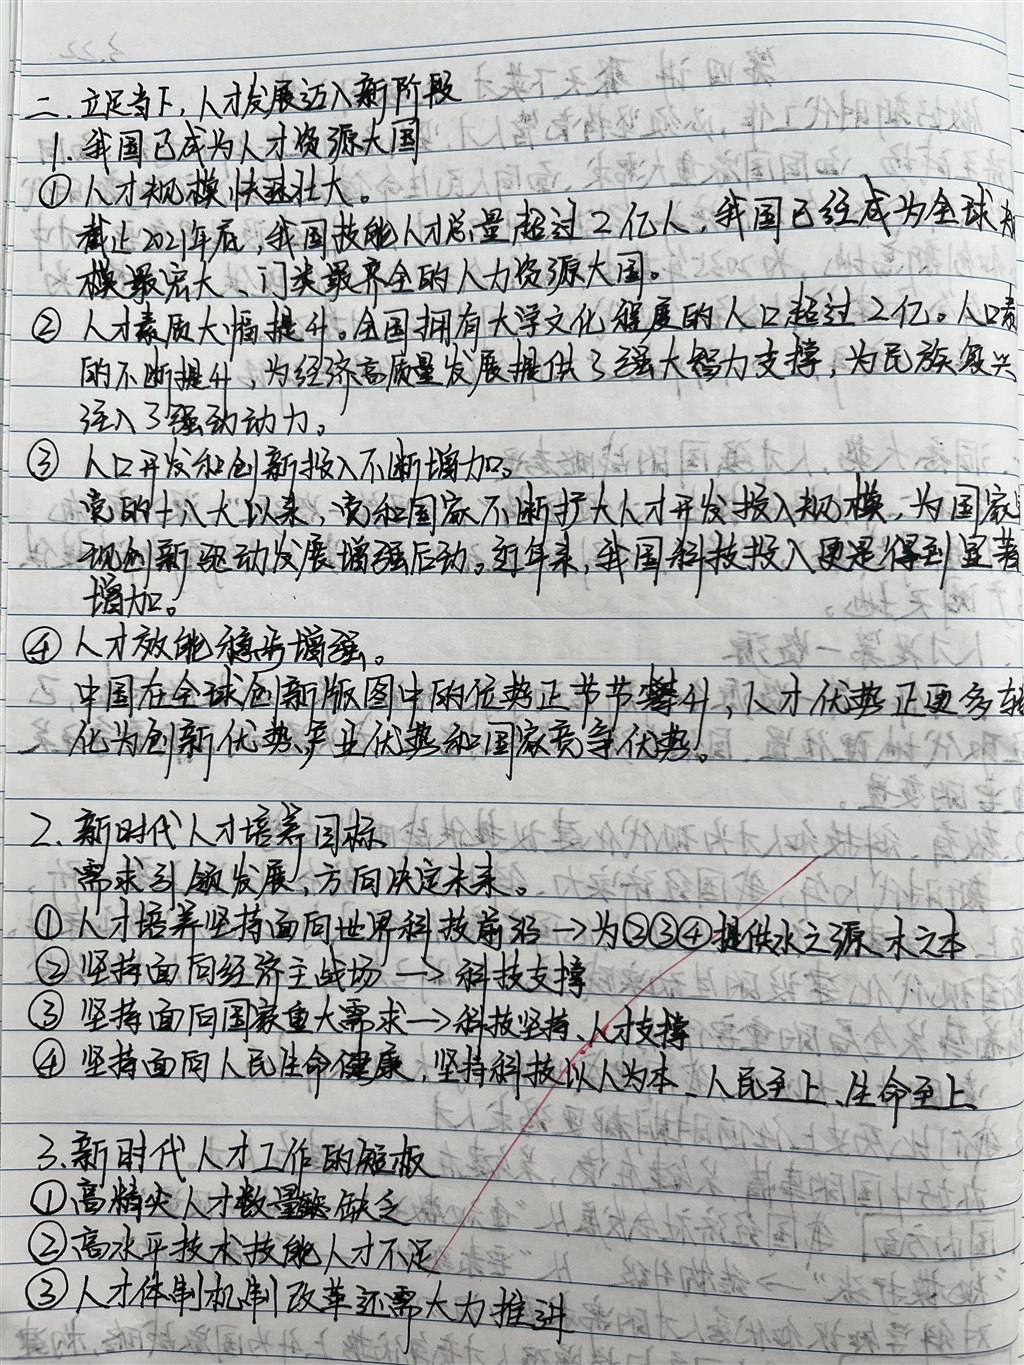 二.立足当下,人才发展迈入新阶段
1.我国已成为人才资源大国
①人才规模快速壮大。
截止2021年底,我国技能人才总量超过2亿人,我国已经成为全球规
模最宏大、门类最齐全的人力资源大国。
②人才素质大幅提升。全国拥有大学文化程度的人口超过2亿。人口素
的不断提升,为经济高质量发展提供了强大智力支撑,为民族复兴
注入了强劲动力。
③人口开发和创新投入不断增加。
党的十八大以来,党和国家不断扩大人才开发投入规模,为国家
现创新驱动发展增强后动。近年来,我国科技投入更是得到显著
增加。
④人才效能稳步增强。
中国在全球创新版图中的位势正节节攀升,人才优势正更多转
化为创新优势、产业优势和国家竞争优势。
2.新时代人才培养目标
需求引领发展,方向决定未来。
①人才培养坚持面向世界科技前沿→为②③④提供水之源、木之本
②坚持面向经济主战场→科技支撑
③坚持面向国家重大需求→科技坚持、人才支撑
④坚持面向人民生命健康,坚持科技以人为本、人民至上、生命至上
3.新时代人才工作的短板
①高精尖人才数量缺乏
②高水平技术技能人才不足
③人才体制机制改革还需大力推进